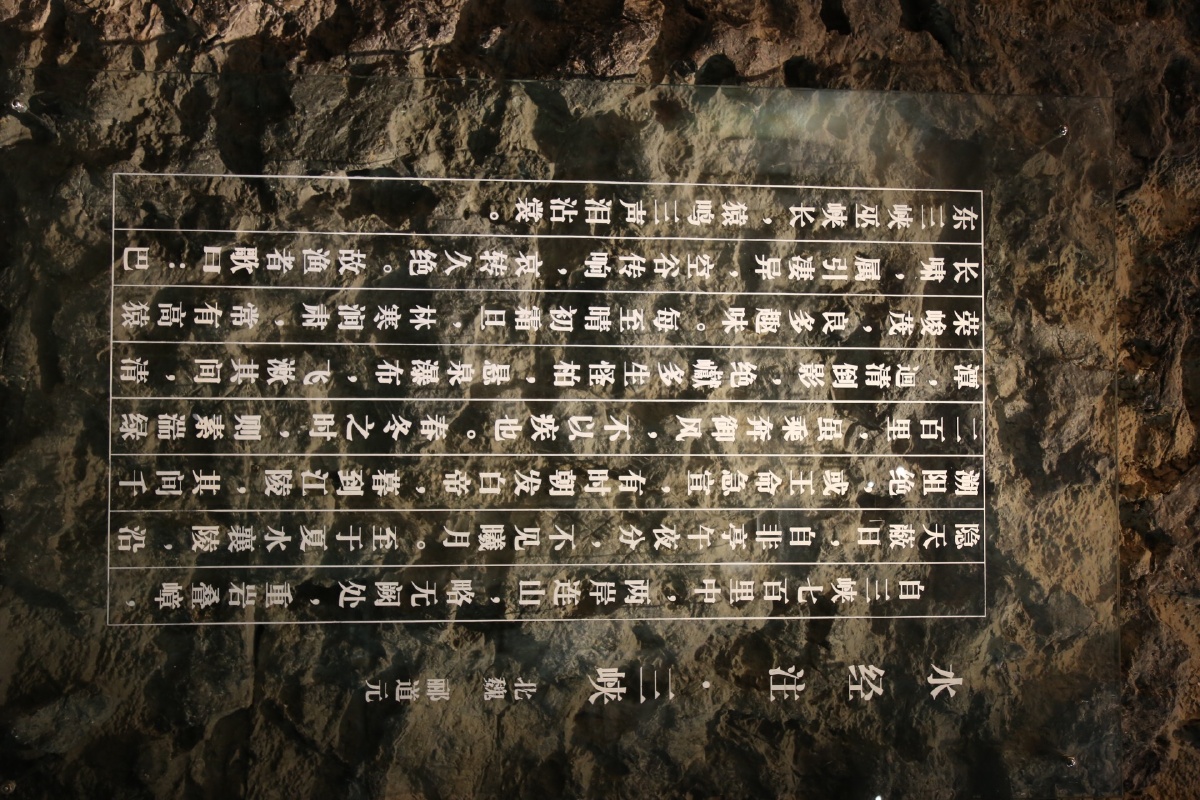 水经注·三峡 北魏 郦道元
自三峡七百里中，两岸连山，略无阙处，重岩叠嶂，
隐天蔽日，自非亭午夜分，不见曦月。至于夏水襄陵，沿
溯阻绝，或王命急宣，有时朝发白帝，暮到江陵，其间千
二百里，虽乘奔御风，不以疾也。春冬之时，则素湍绿
潭，迴清倒影，绝巘多生怪柏，悬泉瀑布，飞漱其间，清
荣峻茂，良多趣味。每至晴初霜旦，林寒涧肃，常有高猿
长啸，属引凄异，空谷传响，哀转久绝。故渔者歌曰：巴
东三峡巫峡长，猿鸣三声泪沾裳。